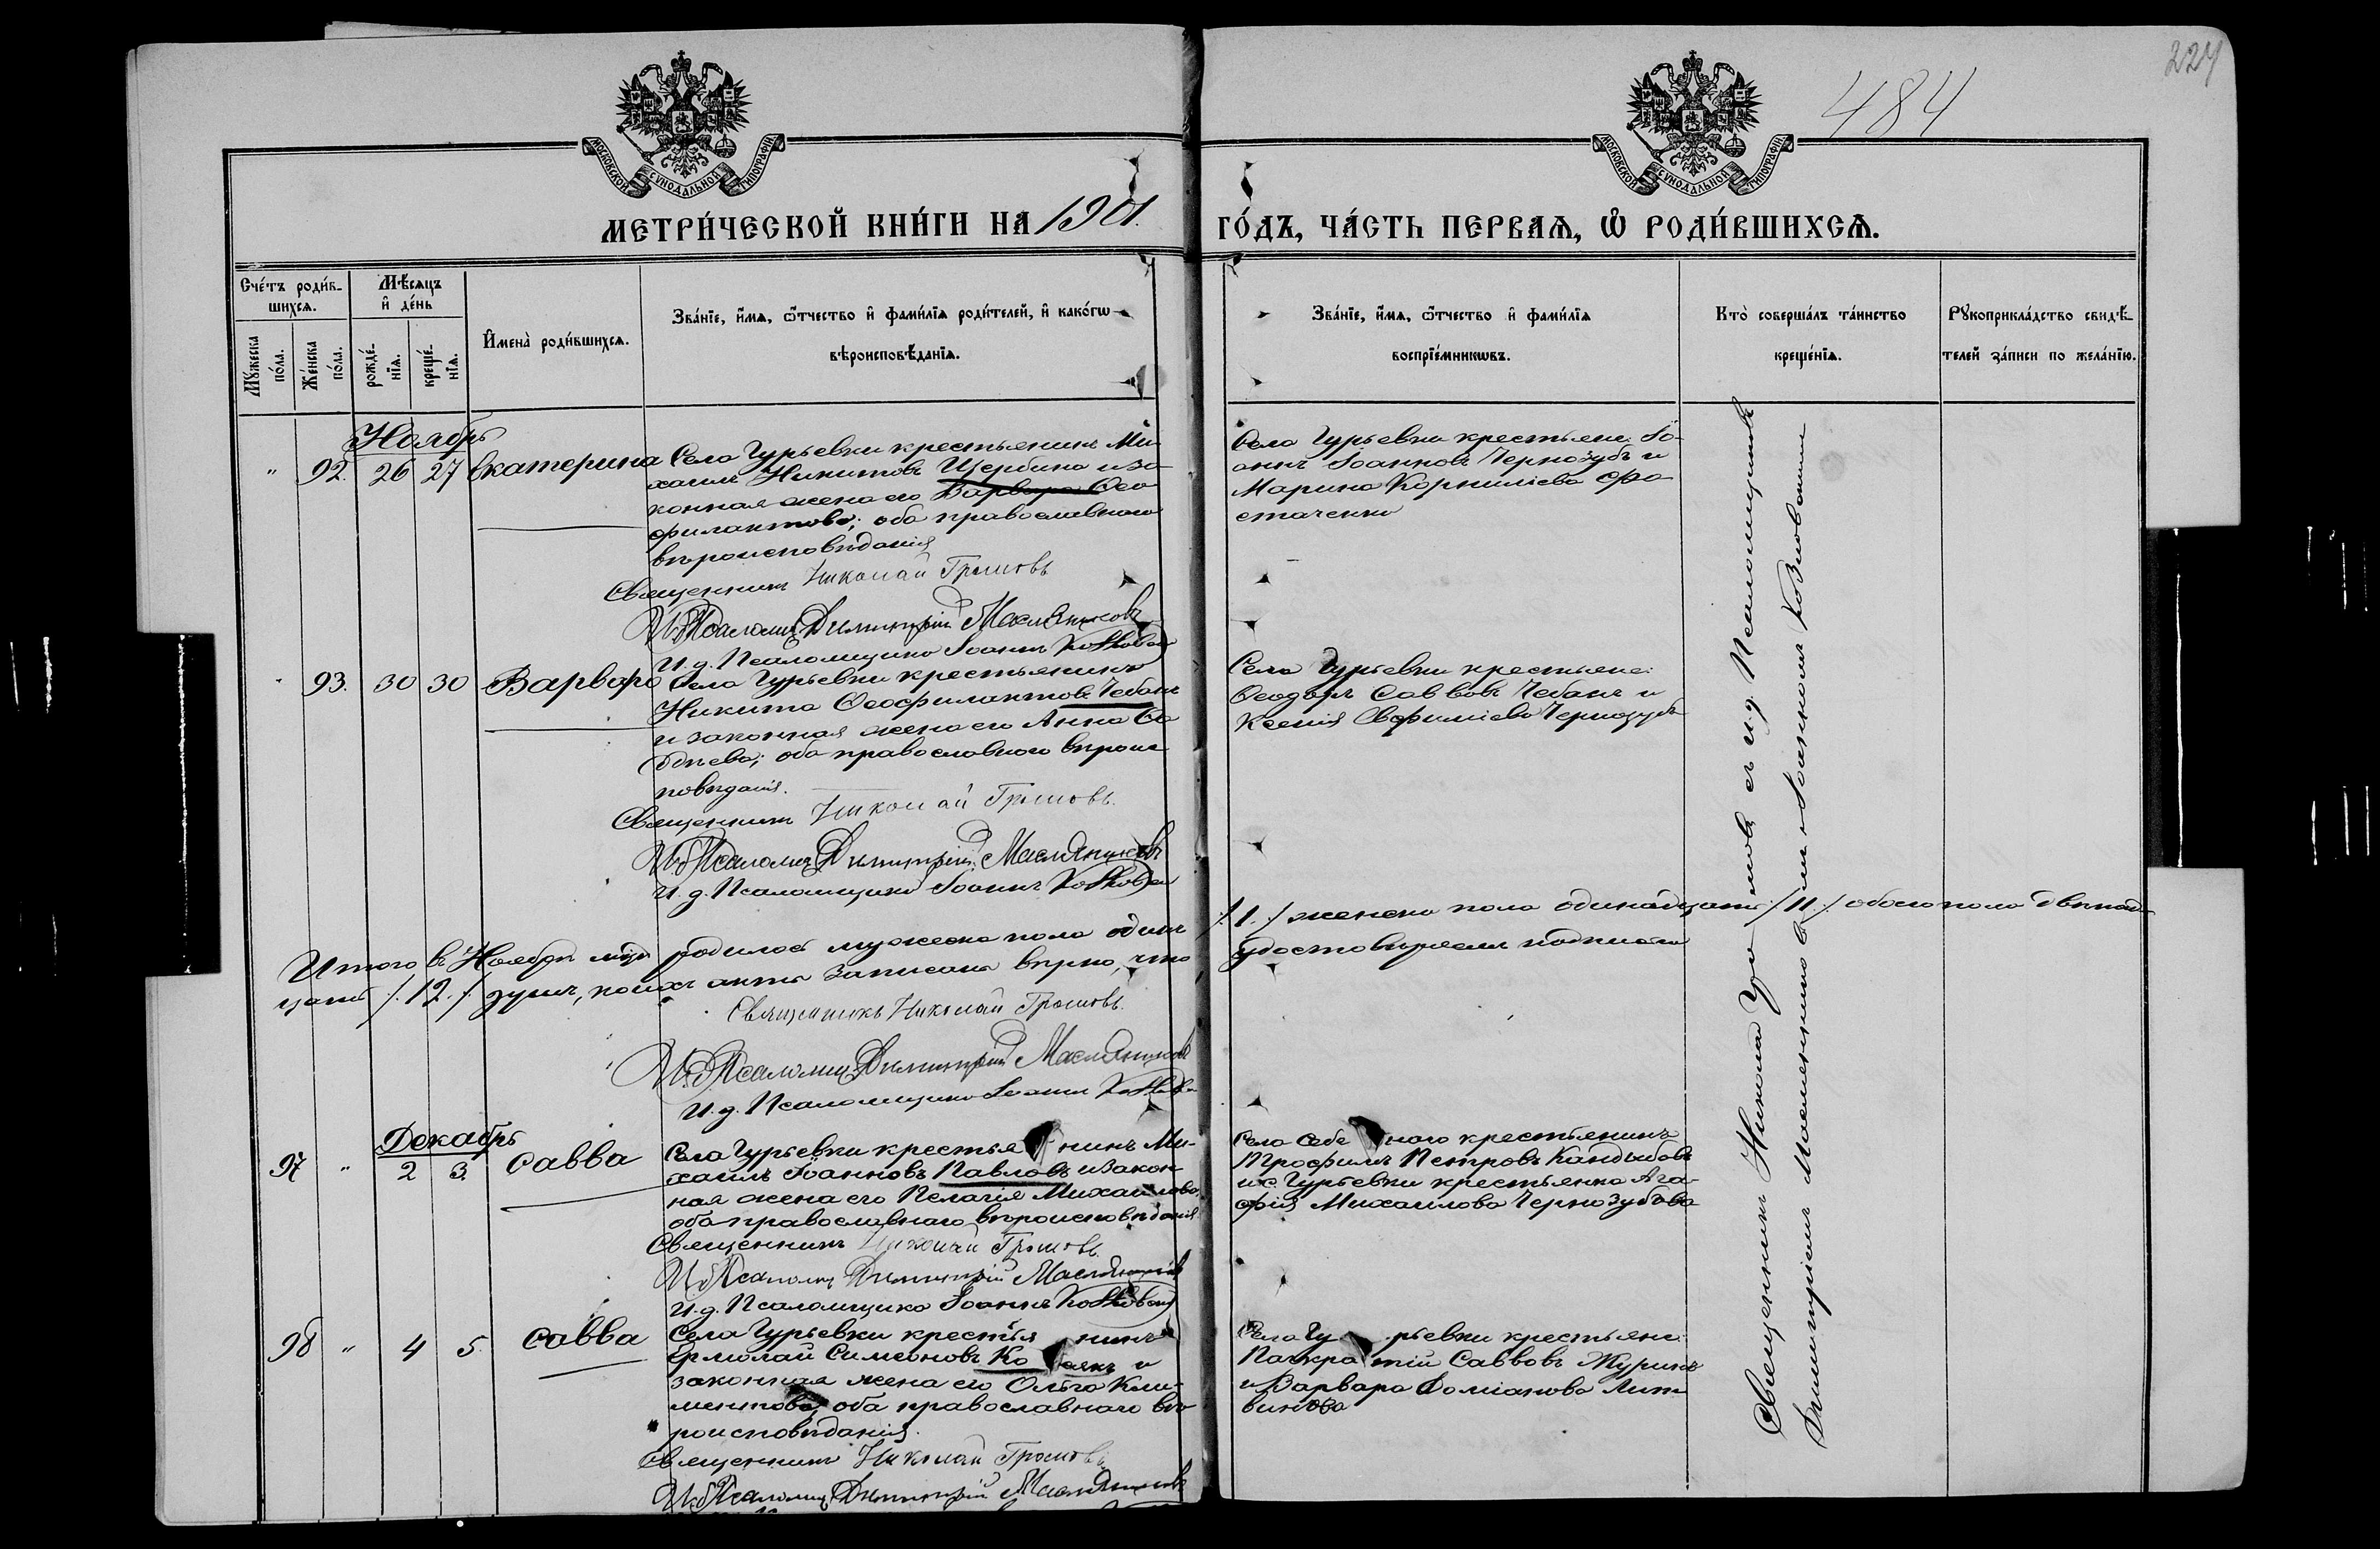 224
484
МОСКОВСКОЙ СѴНОДАЛЬНОЙ ТИПОГРАФІИ
МОСКОВСКОЙ СѴНОДАЛЬНОЙ ТИПОГРАФІИ
МЕТРИ́ЧЕСКОЙ КНИ́ГИ НА 1901.
ГО́ДЪ, ЧА́СТЬ ПЕРВАѦ, Ѡ҆ РОДИ́ВШИХСѦ.
Сче́тъ роди́в-
шихсѧ.
Мꙋ́жеска
по́ла.
Же́нска
по́ла.
Мѣ́сѧцъ
и҆ де́нь
рожде́-
нїѧ.
креще́-
нїѧ.
И҆мена̀ роди́вшихсѧ.
Зва́нїе, и҆́мѧ, ѻ҆́тчество и҆ фами́лїѧ роди́телей, и҆ како́гѡ
вѣроисповѣ́данїѧ.
Зва́нїе, и҆́мѧ, ѻ҆́тчество и҆ фами́лїѧ
воспрїе́мникѡвъ.
Кто̀ соверша́лъ та́инство
креще́нїѧ.
Рꙋкоприкла́дство свидѣ́-
телей за́писи по жела́нїю.
Ноябрь
" 92. 26 27 Екатерина
Села Гурьевки крестьянинъ Ми-
хаилъ Никитовъ Щербина и за-
конная жена его Варвара Ѳео-
филактова; оба православнаго
вѣроисповѣданія
Священникъ Николай Громовъ
И. д. Псаломщ. Димитрій Маслянниковъ
И. д. Псаломщика Іоаннъ
Села Гурьевки крестьяне: Іо-
аннъ Іоанновъ Чернозубъ и
Марина Корниліева
" 93. 30 30 Варвара
Села Гурьевки крестьянинъ
Никита Ѳеофилактовъ Чебанъ
и законная жена его Анна
оба православнаго вѣроис-
повѣданія.
Священникъ Николай Громовъ.
И. д. Псаломщ. Димитрій Маслянниковъ
И. д. Псаломщика Іоаннъ
Села Гурьевки крестьяне:
Ѳеодоръ Саввовъ Чебанъ и
Ксенія Евфиміева Чернозубъ
Итого въ Ноябрѣ м-цѣ родилось мужеска пола одинъ
/.1./ женска пола одинадцать /.11./ обоего пола двѣнад-
цать /.12./ душъ, коихъ акты записаны вѣрно, что
удостовѣряемъ подписами
Священникъ Николай Громовъ.
И. д. Псаломщ. Димитрій Маслянниковъ
И. д. Псаломщика Іоаннъ
Декабрь
97 " 2 3. Савва
Села Гурьевки крестьянинъ Ми-
хаилъ Іоанновъ Павловъ и закон-
ная жена его Пелагія Михаилова,
оба православнаго вѣроисповѣданія
Священникъ Николай Громовъ.
И. д. Псаломщ. Димитрій Маслянниковъ
И. д. Псаломщика Іоаннъ
крестьянинъ
Трофимъ Петровъ Кандыбовъ
и с. Гурьевки крестьянка Ага-
фія Михаилова Чернозубова
98 " 4 5. Савва
Села Гурьевки крестьянинъ
Ермолай Симеоновъ и
законная жена его Ольга Кли-
ментова, оба православнаго вѣ-
роисповѣданія.
Священникъ Николай Громовъ.
И. д. Псаломщ. Димитрій Маслянниковъ
Села Гурьевки крестьяне:
Панкратій Саввовъ Журинъ
и Варвара Доміанова Лит-
винова
Священникъ Николай Громовъ съ и. д. Псаломщиковъ
Димитріемъ Маслянниковымъ и Іоанномъ